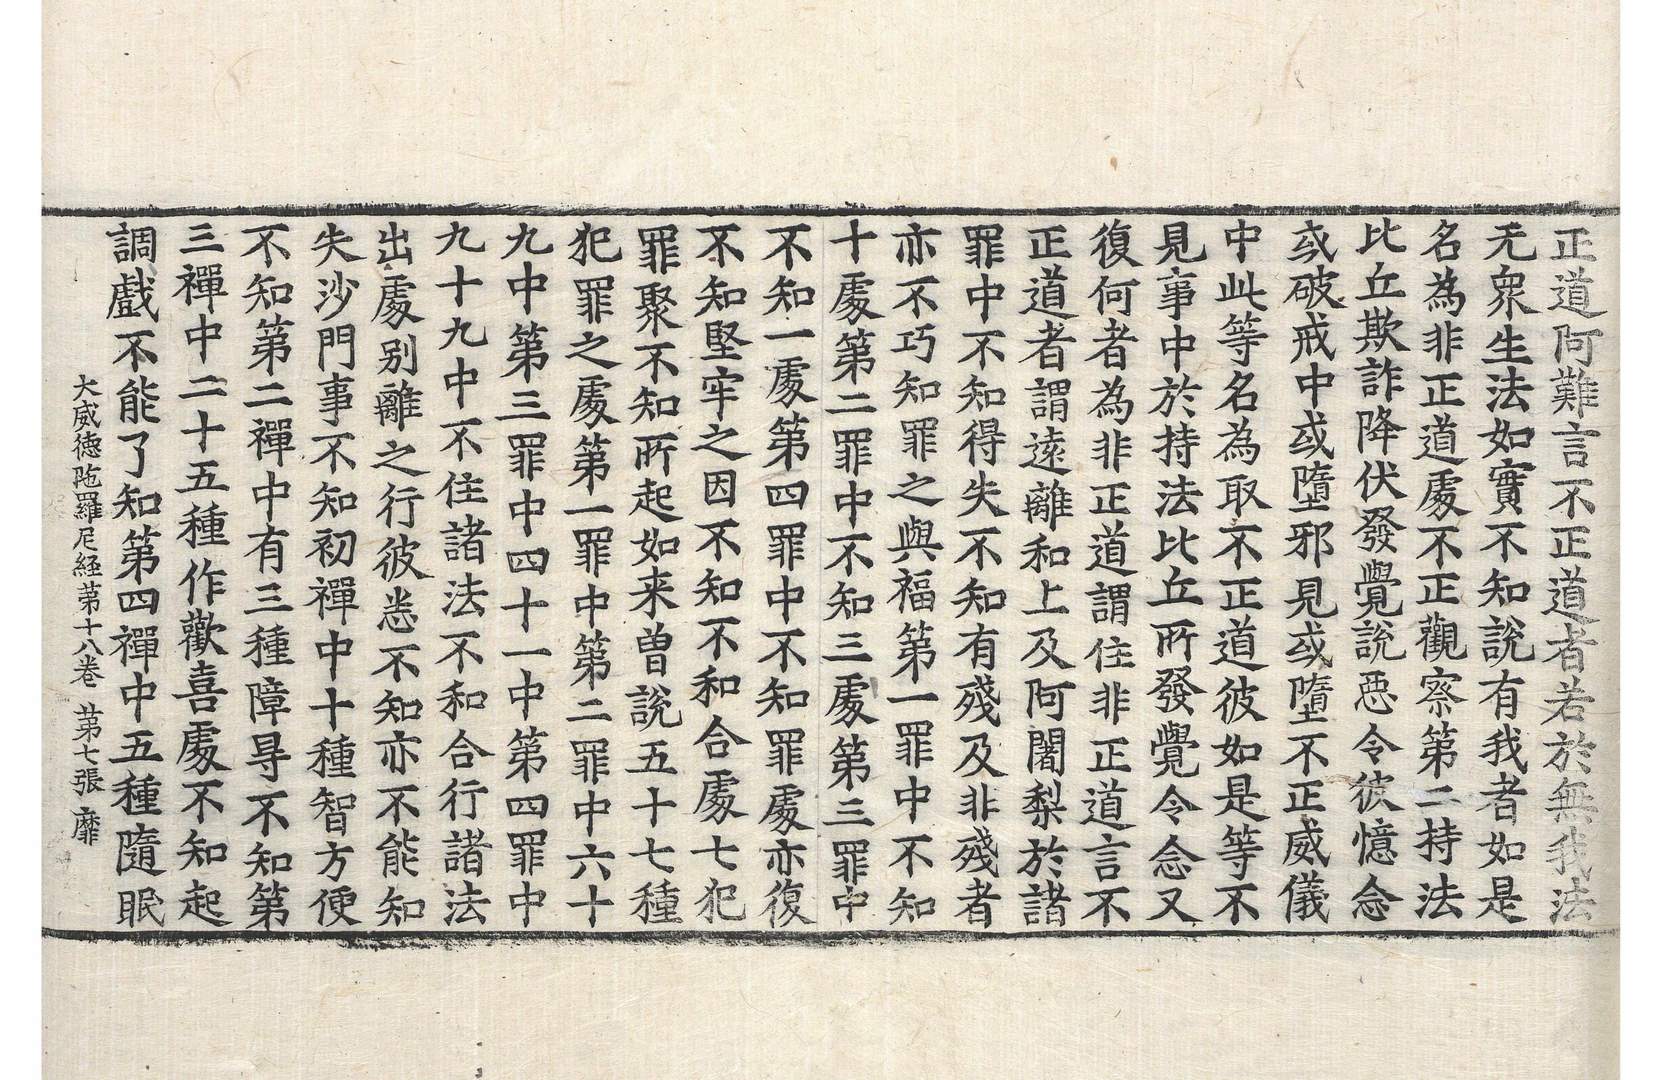 正道阿難言不正道者若於無我法
无衆生法如實不知說有我者如是
名為非正道處不正觀察第二持法
比丘欺詐降伏發覺說惡令彼憶念
或破戒中或墮邪見或墮不正威儀
中此等名為取不正道彼如是等不
見事中於持法比丘所發覺令念又
復何者為非正道謂住非正道言不
正道者謂遠離和上及阿闍梨於諸
罪中不知得失不知有殘及非殘者
亦不巧知罪之與福第一罪中不知
十處第二罪中不知三處第三罪中
不知一處第四罪中不知罪處亦復
不知堅牢之因不知不和合處七犯
罪聚不知所起如来曾說五十七種
犯罪之處第一罪中第二罪中六十
九中第三罪中四十一中第四罪中
九十九中不住諸法不和合行諸法
出處別離之行彼恙不知亦不能知
失沙門事不知初禪中十種智方便
不知第二禪中有三種障㝵不知第
三禪中二十五種作歡喜處不知起
調戲不能了知第四禪中五種隨眠
大威德陁羅尼経第十八卷 第七張 靡